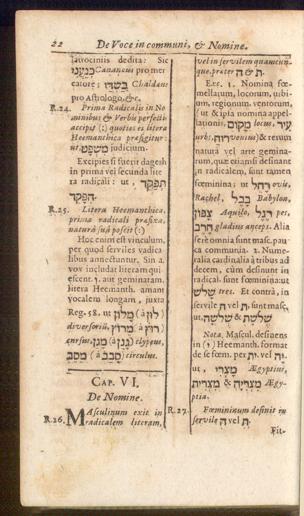 22 De Voce in communi, & Nomine.
patrociniis dedita: Sic
כְּנַעֲנִי Cananæus pro mer
catore; כַּשְׂדִּי Chaldæus
pro Astrologo, &c.
R.24. Prima Radicalis in No
minibus & Verbis perfectis
accepis (:) quoties es litera
Heemanthica præfigitur:
ut. מִשְׁפָּט judicium.
Excipies si fuerit dagesh
in prima vel secunda lite
ra radicali: ut,
הִפָּקֵד.
R.25. Litera Heemanthica,
prima radicali præfixa,
naturâ suâ poscit (:)
Hoc enim est vinculum,
per quod serviles vadica
libus annectuntur. Sin a.
vov includat literam qui
escent. aut geminatam.
litera Heemanth. amam
vocalem longam, juxta
Reg. 58. ut מָלוֹן (à לוּן)
diversoriũ, מָרוֹץ (à רוּץ)
cursus, מָגֵן (à גָּנַן) clypeus,
מֵסַב (à סָבַב) circulus.
CAP. VI.
De Nomine.
R.26. Masculinum exit in
radicalem literam,
vel in servilem quamcun-
que. præter ה & ת
Exc. 1. Nomina fœ-
mellarum, locorum, urbi-
um, regionum. ventorum,
ut & ipsa nomina appel-
lationis: מָקוֹם locus, עִיר
urbs, רוּחַ ventus) & rerum
naturâ vel arte gemina-
rum, quæ etiamsi desinant
in radicalem, sunt tamen
fœminina: ut רָחֵל ovis,
Rachel, בָּבֶל Babylon,
צָפוֹן Aquilo, רֶגֶל pes,
חֶרֶב gladius anceps. Alia
ferè omnia sunt masc. pau
ca communia. 2. Nume-
ralia cardinalia à tribus ad
decem, cùm desinunt in
radical. sunt fœminina, ut
שָׁלֹשׁ tres. Et contrà, in
servile ה vel ת, sunt masc.
ut שְׁלֹשָׁה & שְׁלֹשֶׁת.
Nota. Mascul. desinens
in (י) Heemanth. format
de se fœm. per יָה. vel ית.
ut, מִצְרִי Ægyptius,
מִצְרִיָּה & מִצְרִית Ægy-
ptia.
R.27. Fœmininum definit in
servile ה vel ת.
Fit-